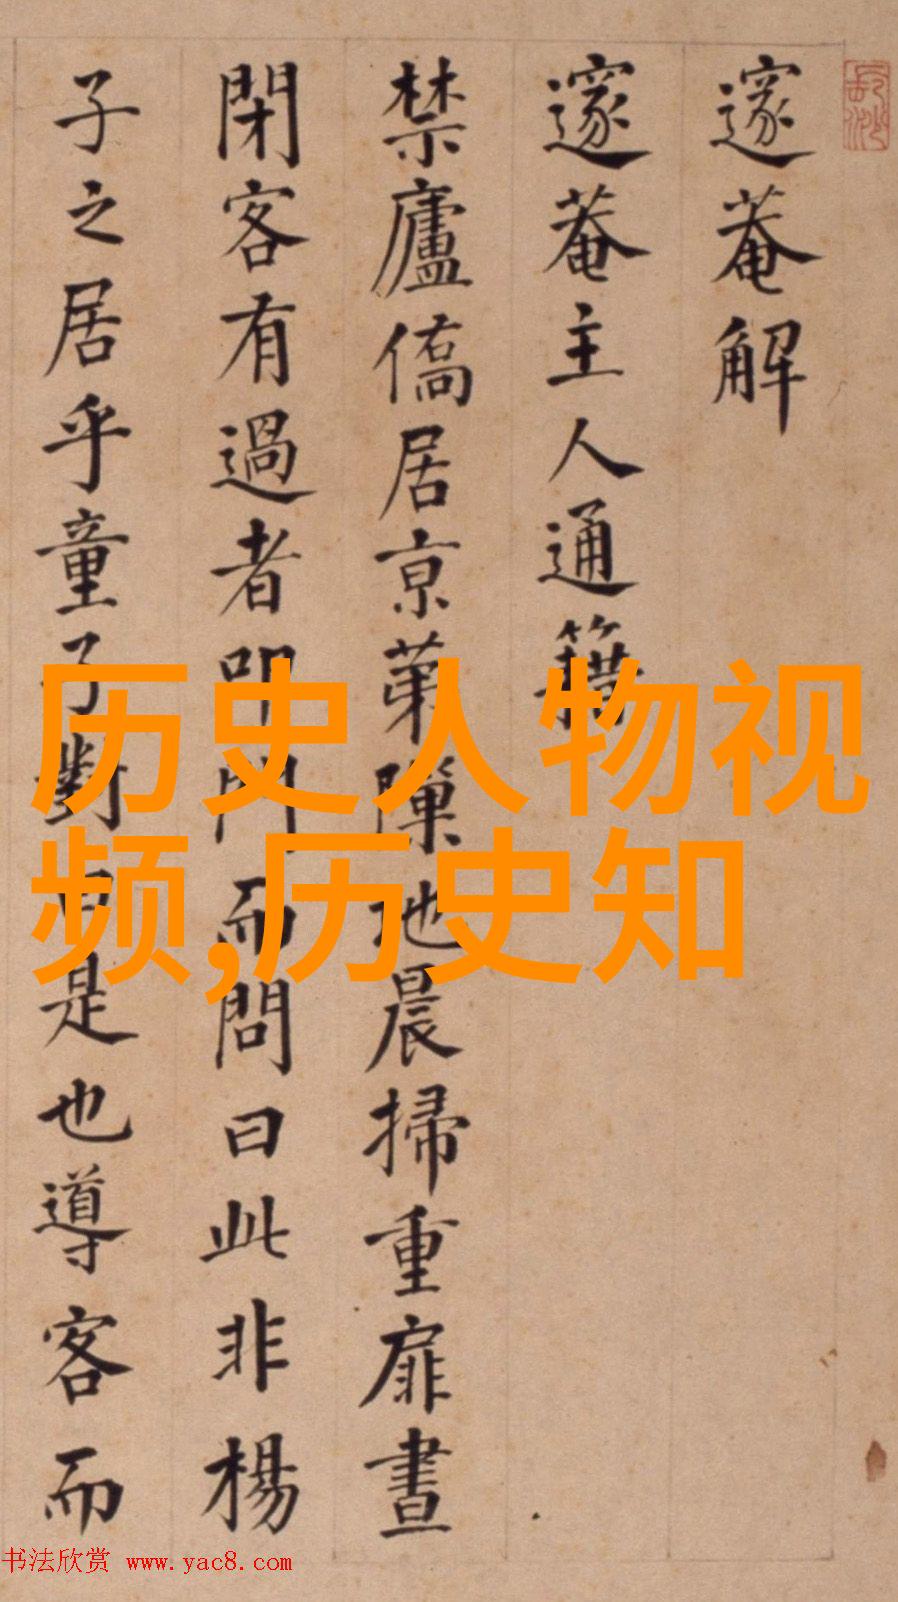 邃菴解
邃菴主人通籍
禁廬僑居京第隙地晨掃重扉晝
閉客有過者叩門而問曰此非楊
子之居乎童子對曰是也導客而
历史人物视
频,历史知
书法欣赏 www.yac8.com